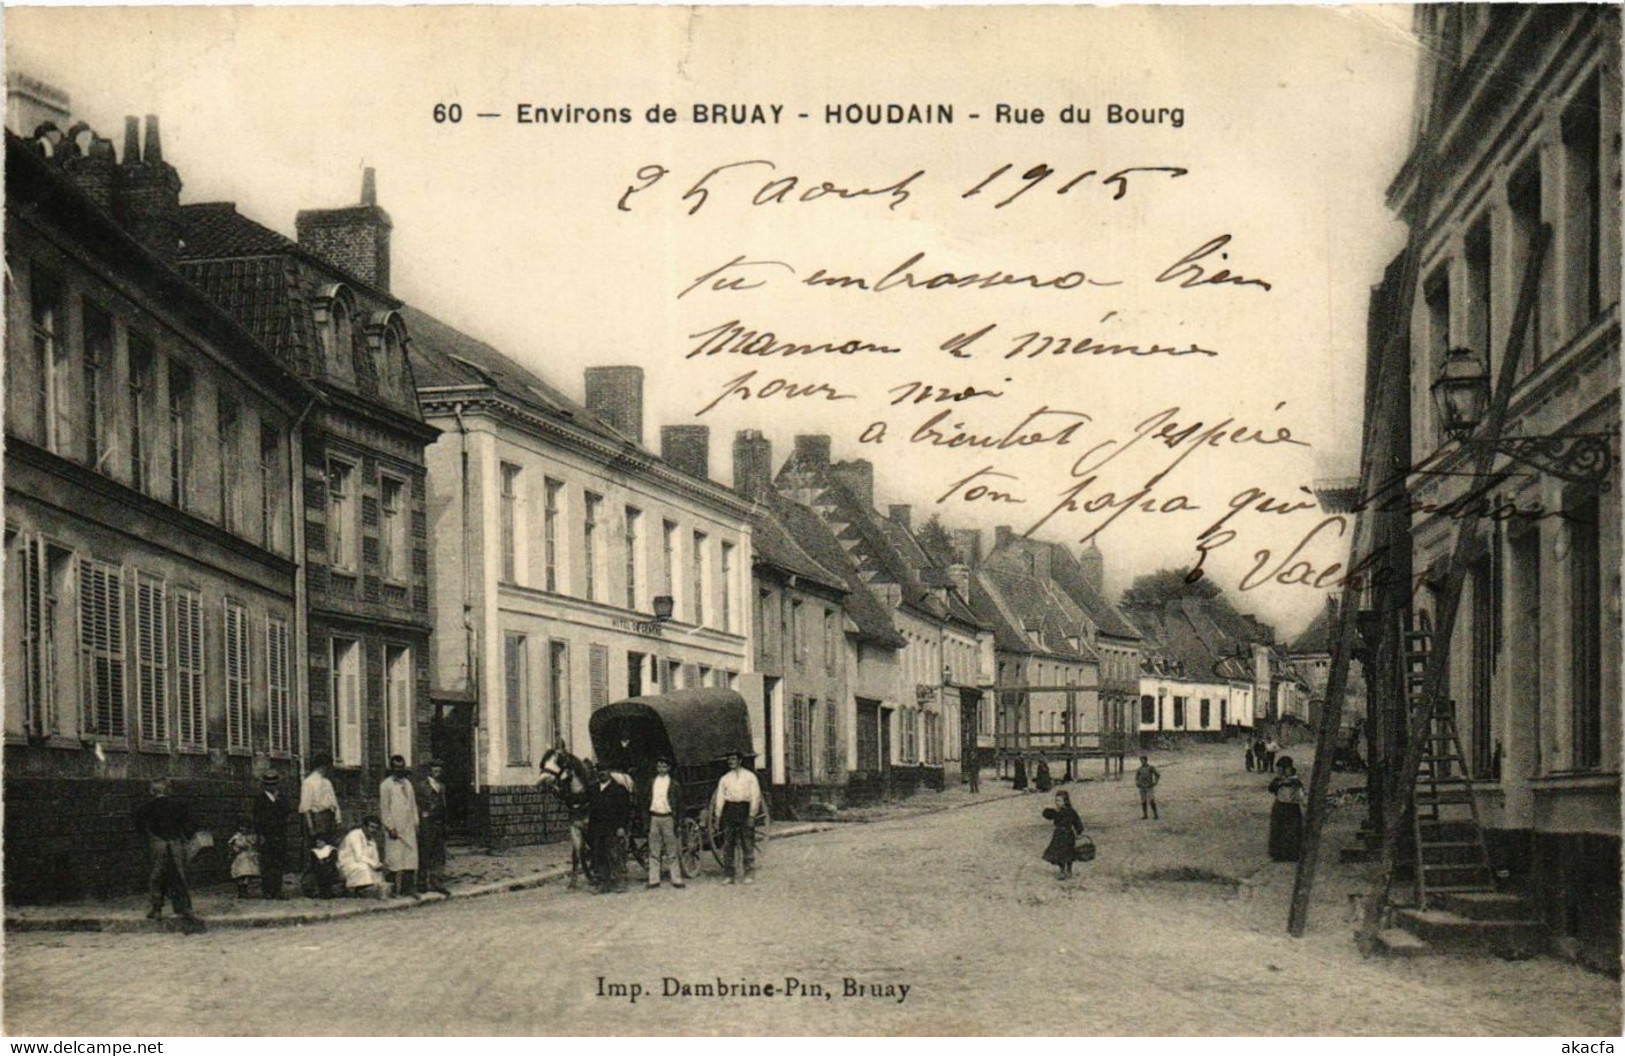 60 — Environs de BRUAY - HOUDAIN - Rue du Bourg
25 Aout 1915
tu embrassera bien
Maman et mémère
pour moi
a bientot J'espére
ton papa qui
E Vacher
HOTEL DU CENTRE
Imp. Dambrine-Pin, Bruay
delcampe.net
akacfa